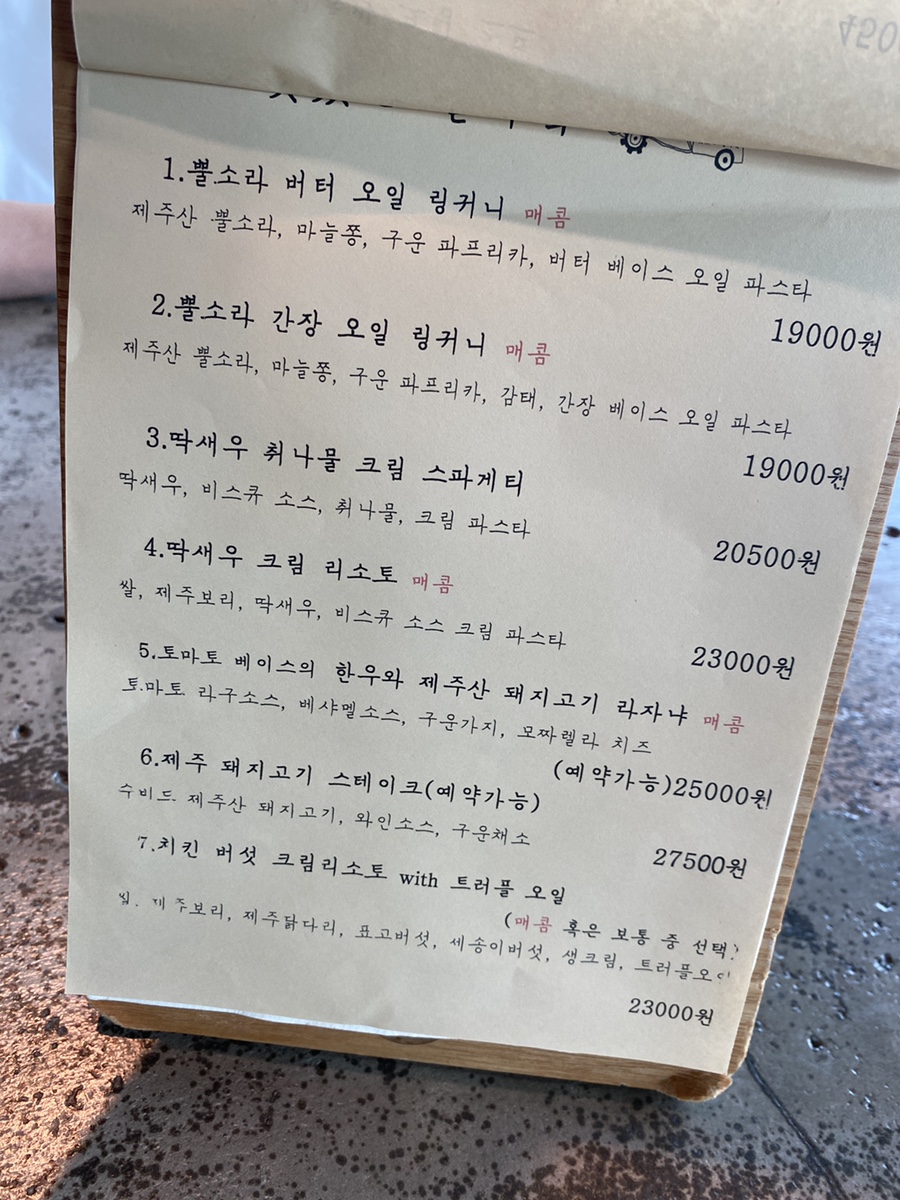 1.뿔소라 버터 오일 링귀니 매콤
제주산 뿔소라, 마늘쫑, 구운 파프리카, 버터 베이스 오일 파스타
19000원
2.뿔소라 간장 오일 링귀니 매콤
제주산 뿔소라, 마늘쫑, 구운 파프리카, 감태, 간장 베이스 오일 파스타
19000원
3.딱새우 취나물 크림 스파게티
딱새우, 비스큐 소스, 취나물, 크림 파스타
20500원
4.딱새우 크림 리소토 매콤
쌀, 제주보리, 딱새우, 비스큐 소스 크림 파스타
23000원
5.토마토 베이스의 한우와 제주산 돼지고기 라자냐 매콤
토마토 라구소스, 베샤멜소스, 구운가지, 모짜렐라 치즈
(예약가능)25000원
6.제주 돼지고기 스테이크(예약가능)
수비드 제주산 돼지고기, 와인소스, 구운채소
27500원
7.치킨 버섯 크림리소토 with 트러플 오일
(매콤 혹은 보통 중 선택)
쌀, 제주보리, 제주닭다리, 표고버섯, 세송이버섯, 생크림, 트러플오일
23000원